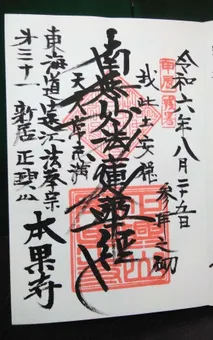 令和六年八月二十五日
参拝之砌
我此土安穏
南無妙法蓮華経
天人常充満
本果寺
東海道遠江法華宗
才三十一 新居 正興山